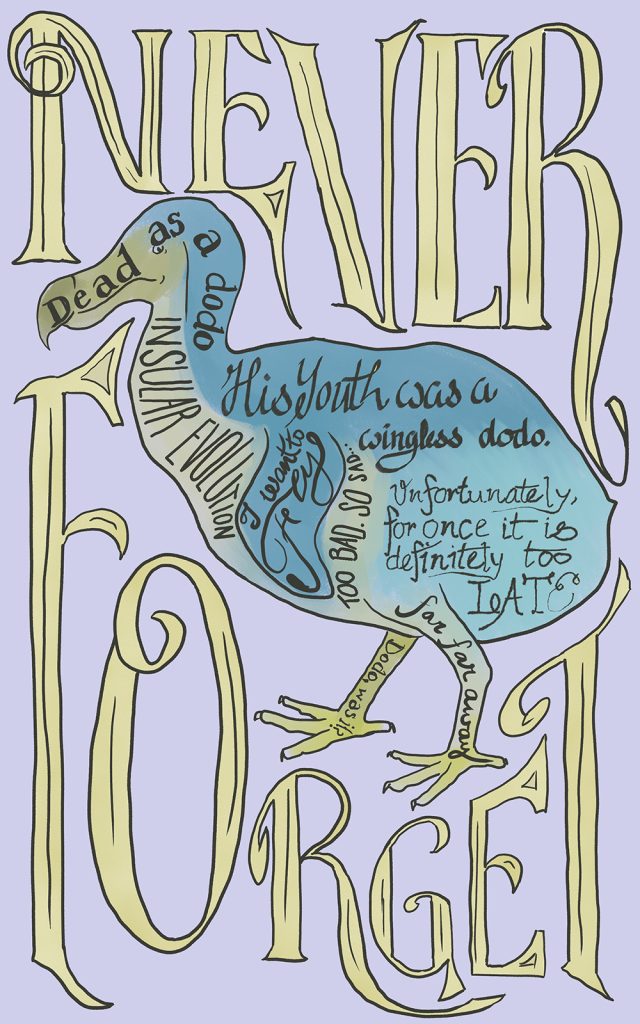 NEVER
Dead as a dodo
INSULAR EVOLUTION
His Youth was a
wingless dodo.
I want to
Cry
TOO BAD. SO SAD...
Unfortunately,
for once it is
definitely too
LATE
far far away
Dodo, was it?
FORGET